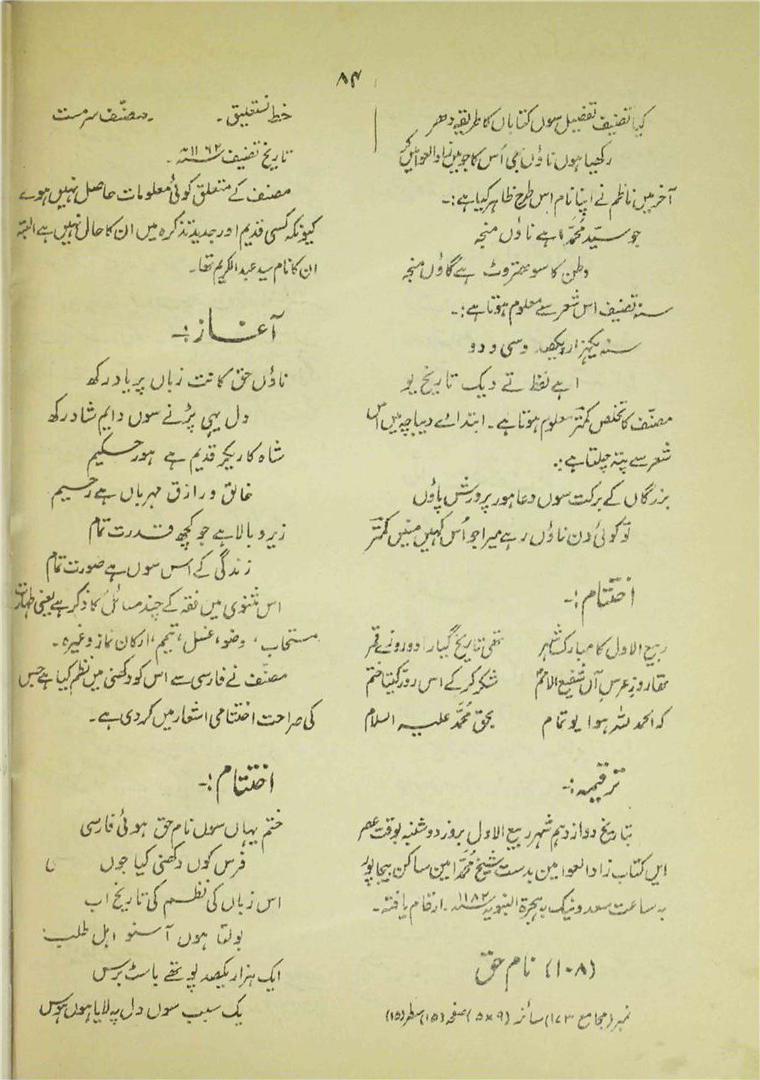 ۸۴
کیا تصنیف تفصیل سوں کتاباں کا طریقہ دھر
رکھیا ہوں ناؤں بھی اُس کا جو میں زاد العوامیں کر
آخر میں ناظم نے اپنا نام اس طرح ظاہر کیا ہے:۔
جو سیّد محمّد اہے ناؤں منجہ
وطن کا سو بھروٹ ہے گاؤں منجہ
سنہ تصنیف اس شعر سے معلوم ہوتا ہے:۔
سنہ یکہزار و یکصد و سی و دو
اہے لفظ تے دیک تاریخ یو
مصنّف کا تخلص کمتر معلوم ہوتا ہے۔ ابتدائے دیباچہ میں اس
شعر سے پتہ چلتا ہے:۔
بزرگاں کے برکت سوں دعا ہور پرورش پاؤں
تو کوئی دن ناؤں رہے میرا جو اُس کہیں منیں کمتر
اختتام:۔
ربیع الاول کا مبارک شہر تھی تاریخ گیارا و دو روئے قمر
تھا روز عرس آں شفیع الامم شکر کر کے اس روز کیتا ختم
کہ الحمد للہ ہوا یو تمام بحق محمّد علیہ السلام
ترقیمہ:۔
بتاریخ دوازدہم شہر ربیع الاول بروز دوشنبہ بوقت عصر
ایں کتاب زاد العوامین بدست شیخ محمّد امین ساکن بیجاپور
بہ ساعت سعد و نیک بہ ہجرۃ النبویہ سنہ ۱۱۸۲۔ ارقام یافتہ۔
(۱۰۸) نام حق
نمبر (مجامع ۱۷۳) سائز (۹×۵) صفحہ (۱۵) سطر (۱۵)
خط نستعلیق۔ مصنّف سرمست
تاریخ تصنیف سنہ ۱۱۶۲ھ۔
مصنف کے متعلق کوئی معلومات حاصل نہیں ہوے
کیونکہ کسی قدیم اور جدید تذکرہ میں ان کا حال نہیں ہے البتہ
ان کا نام سید عبد الکریم تھا۔
آغاز:۔
ناؤں حق کا نت زباں پر یاد رکھ
دل یہی پڑنے سوں دایم شاد رکھ
شاہ کاریگر قدیم ہے ہور حکیم
خالق و رازق مہرباں ہے رحیم
زیر و بالا ہے جو کچھ قدرت تمام
زندگی کے اس سوں ہے صورت تمام
اس مثنوی میں فقہ کے چند مسائل کا ذکر ہے یعنی طہارت
مستحاب، وضو، غسل، تیمم، ارکان نماز وغیرہ۔
مصنّف نے فارسی سے اس کو دکھنی میں نظم کیا ہے جس
کی صراحت اختتامی اشعار میں کر دی ہے۔
اختتام:۔
ختم یہاں سوں نام حق ہوئی فارسی
فرس کوں دکھنی کیا جوں
اس زباں کی نظم کی تاریخ اب
بولتا ہوں آسنو اہل طلب
ایک ہزار یکصد پو تھے باسٹ برس
یک سبب سوں دل پہ لایا ہوں ہوس